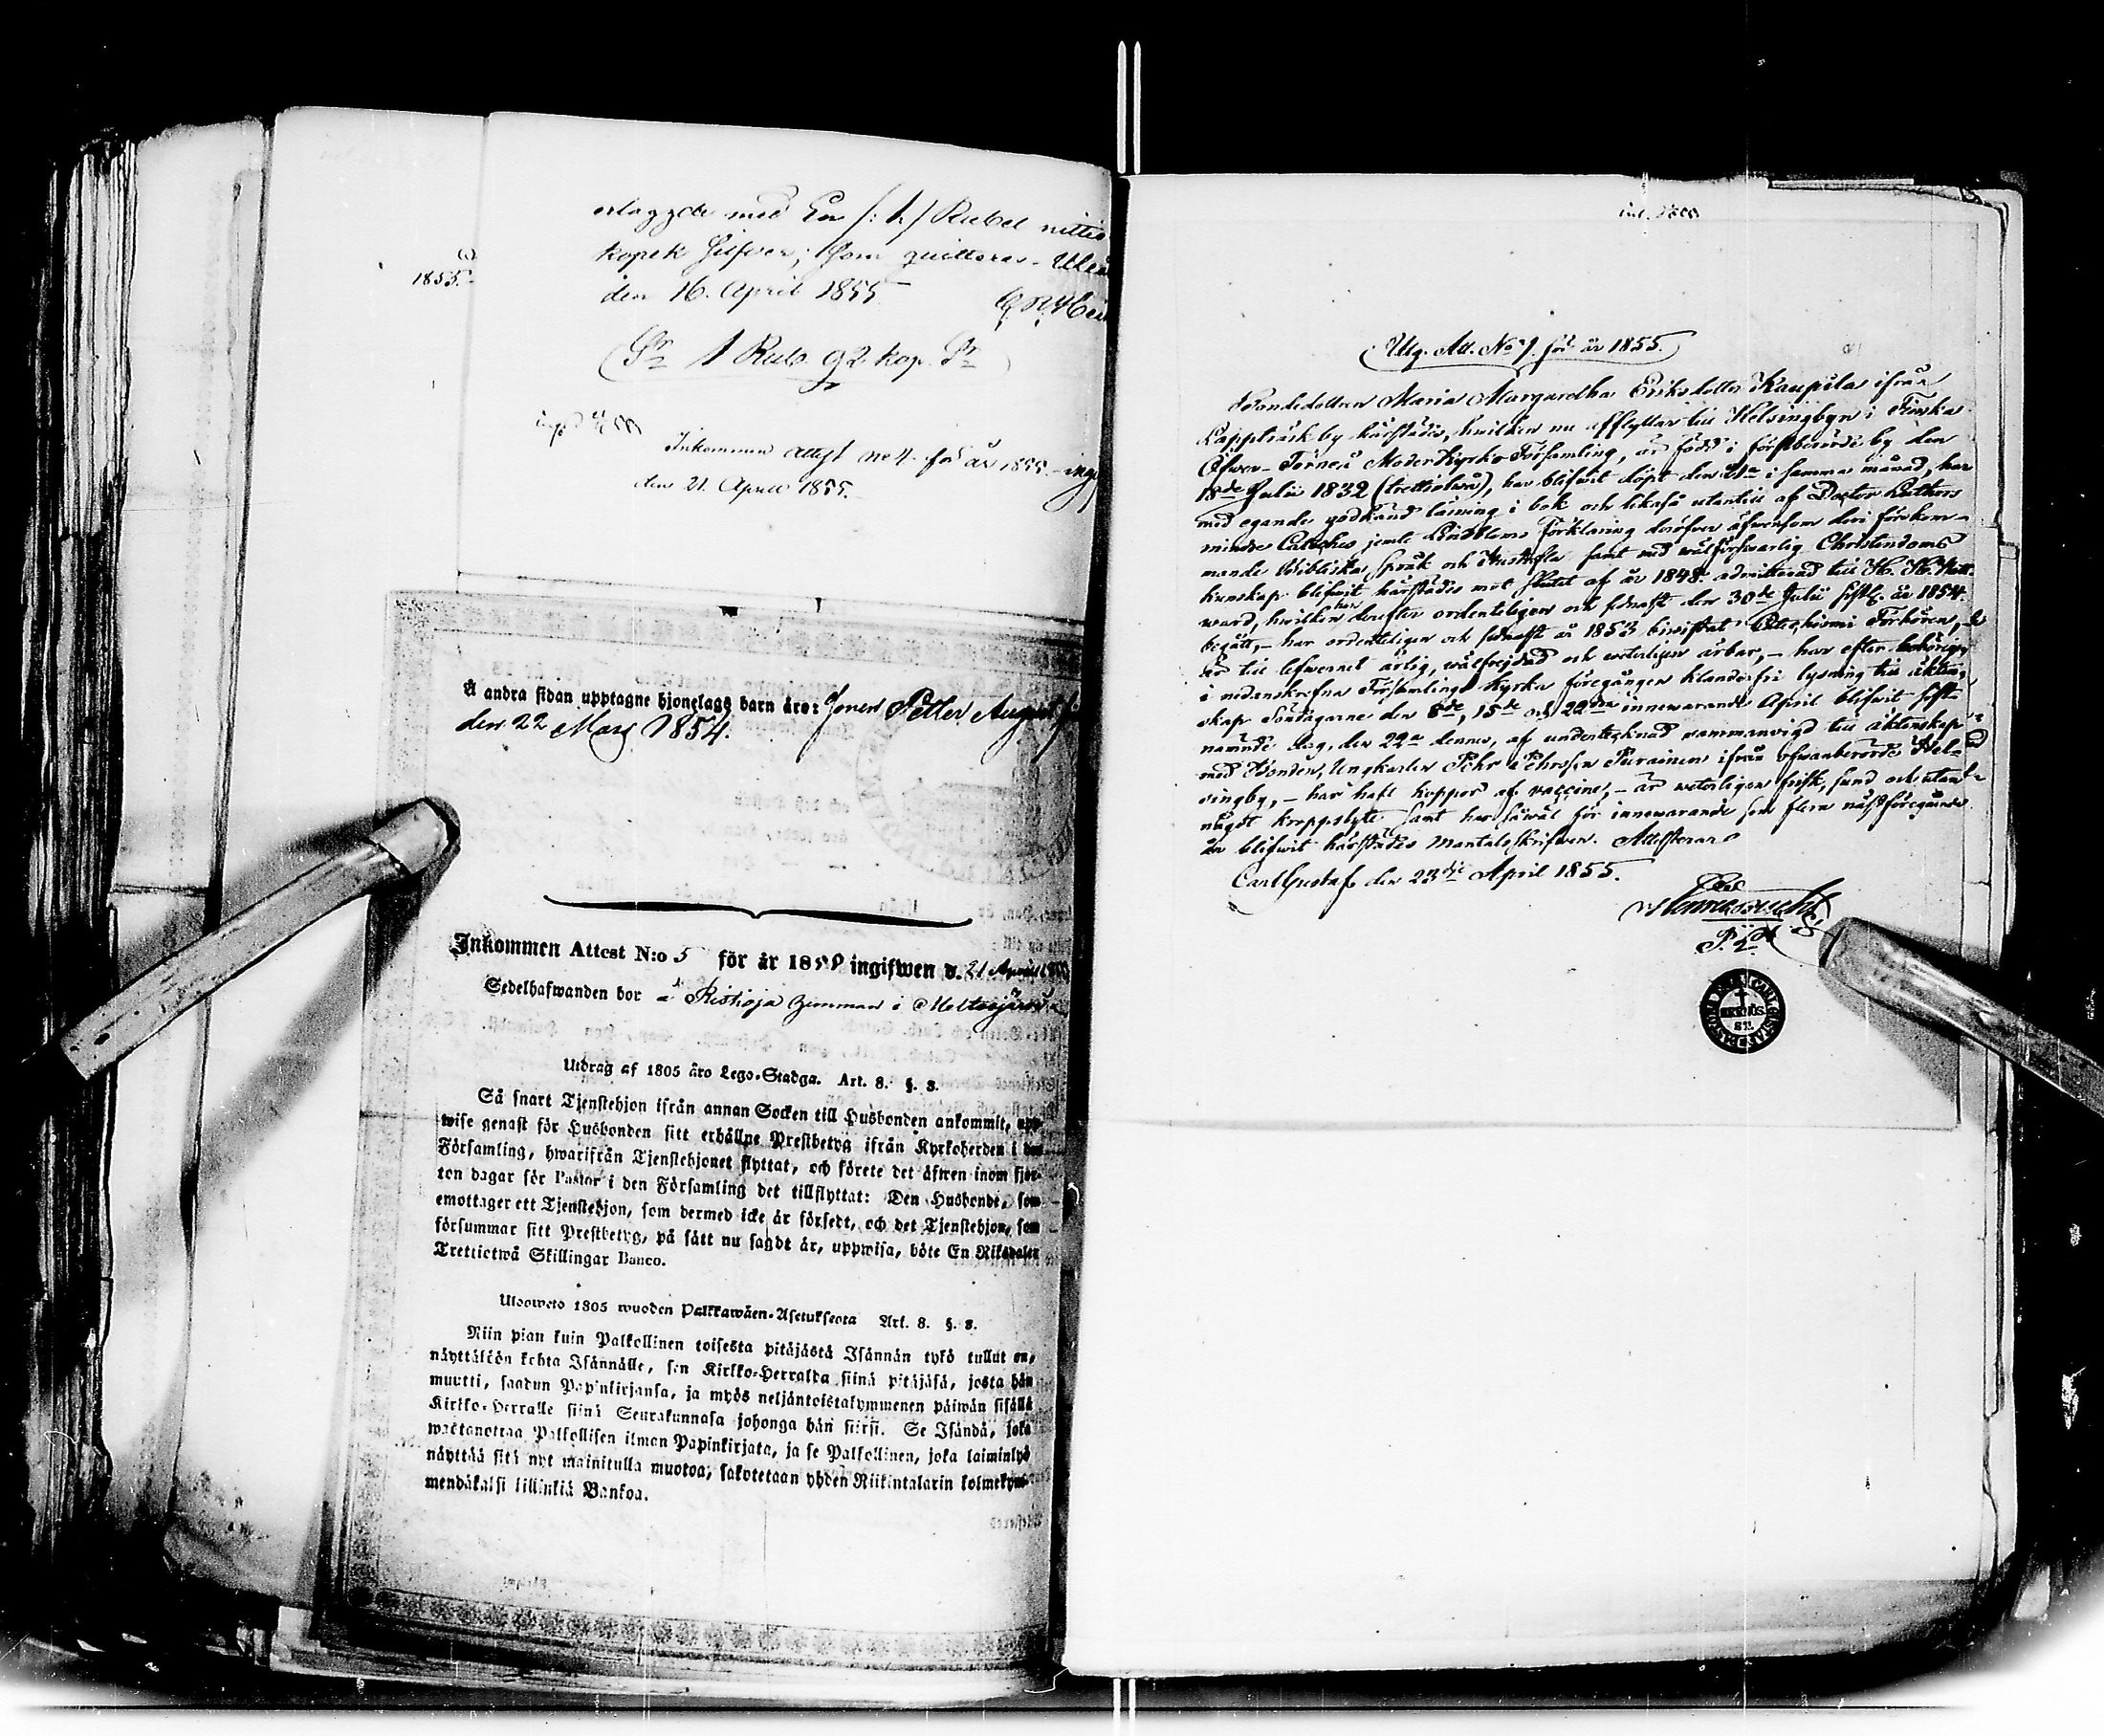 erlaggde med En /: 1 / Rubel nittio
kopek Silfver; som quitteras - Uleå
1855.
den 16. April 1855
Sr 1 Rub. 92 kop. Sr
Inkommen attest No 4 för år 1855. - ing
den 21. April 1855.
Å andra sidan upptagne hjonelags barn äro: Jonas Petter August
den 22 Mars 1854.
Inkommen Attest N:o 5 för år 1855 ingifwen d. 21 April
Sedelhafwanden bor å Ristioja hemman i Meltosjärvi
Utdrag af 1805 åro Lego-Stadga. Art. 8. §. 8.
Så snart Tjenstehjon ifrån annan Socken till Husbonden ankommit, upp-
wise genast för Husbonden sitt erhållne Prestbetyg ifrån Kyrkoherden i den
Församling, hwarifrån Tjenstehjonet flyttat, och förete det äfwen inom fjor-
ton dagar för Pastor i den Församling det tillflyttat: Den Husbonde, som
emottager ett Tjenstehjon, som dermed icke är försedt, och det Tjenstehjon, som
försummar sitt Prestbetyg, på sätt nu sagdt är, uppwisa, böte En Riksdaler
Trettiotwå Skillingar Banco.
Ulosweto 1805 wuoden Palkkawäen-Asetuksesta Art. 8. §. 8.
Niin pian kuin Palkollinen toisesta pitäjästä Isännän tykö tullut on,
näyttäköön kohta Isännälle, sen Kirkko-Herralda siinä pitäjäsä, josta hän
muutti, saadun Papinkirjansa, ja myös neljäntoistakymmenen päiwän sisällä
Kirkko-Herralle siinä Seurakunnasa johonga hän siirsi. Se Isändä, joka
wastanottaa Palkollisen ilman Papinkirjata, ja se Palkollinen, joka laiminlyö
näyttää sitä nyt mainitulla muotoa, sakotetaan yhden Riikintalarin kolmekym-
mendäkaksi killinkiä Bankoa.
Utg. Att. No 7. för år 1855.
Bondedottren Maria Margaretha Eriksdotter Kaupila ifrån
Kappträsk by härstädes, hwilken nu afflyttar till Helsingbyn i Finska
Öfwer-Torneå Moderkyrko-Församling, är född i förstberörde by den
18de Julii 1832 (trettiotwå), har blifwit döpt den 21a i samma månad, har
med egande godkänd läsning i bok och lekaså utantill af Doctor Luthers
mindre Cateches jemte Lindbloms Förklaring deröfver äfwensom deri förekom-
mande Bibliska språk och Hustafla samt med wälförswarlig Christendoms
kunskap blifwit härstädes mot slutet af år 1848 admitterad till H. H. Natt-
ward, hwilken har derefter ordenteligen och sednast den 30de Julii sistl. år 1854.
begått, - har ordenteligen och sednast år 1853 biwistat Catechismi Förhören,
är till lefwernet ärlig, wälfrejdad och weterligen ärbar, - har efter behörigen
i nedanskrefne Församlings Kyrka föregången klanderfri lysning till äkten-
skap Söndagarne den 8de, 15de och 22dra innewarande April blifwit sist-
nämnde dag, den 22a dennes, af undertecknad sammanvigd till äktenskap
med Bonden, Ungkarlen Pehr Pehrsson Puranen ifrån ofwanberörde Hel-
singby, - har haft koppor af vaccine, - är weterligen frisk, sund och utan
något kroppslyte samt har såwäl för innewarande som flera nästföregående
år blifwit härstädes mantalsskrifwen. Attesterar
Carl Gustafs den 23dje April 1855.